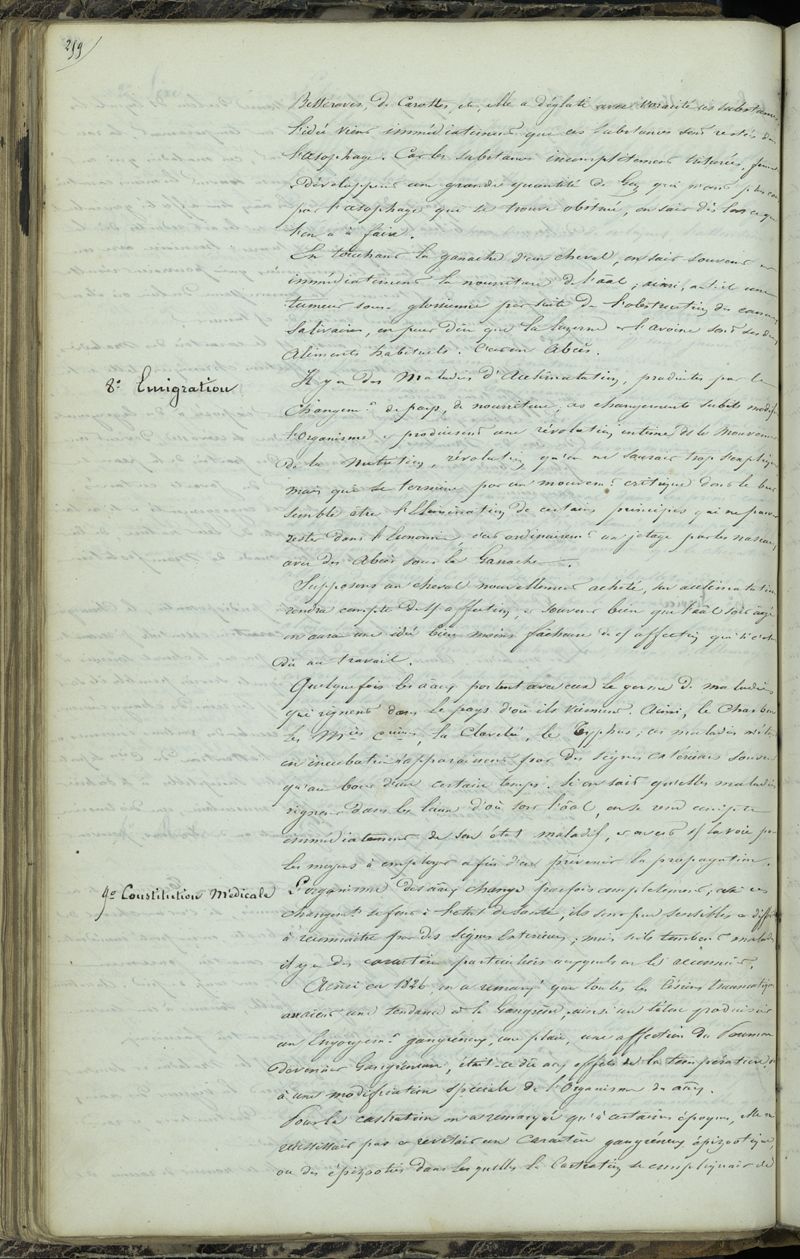 299
Betteraves, de Carottes, etc, elle a dégluti avec voracité ces substances,
l'idée vient immédiatement que ces substances sont restées dans
l'œsophage. Car les substances incomplètement triturées,
développent une grande quantité de Gaz qui n'ont plus
par l'œsophage que se trouve obstrué, on sait dès lors ce que
l'on a à faire.
En touchant la ganache d'un cheval, on sait souvent
immédiatement la nourriture de l'aal; ainsi, a-t-il une
tumeur sous-glossienne par suite de l'obstruction des canaux
Salivaires, on peut dire que la luzerne et l'avoine sont ses
Aliments habituels. C'est un Abcès.
8º Emigration
Il y a des Maladies d'Acclimatation, produites par le
Changemt de pays, de nourriture, ces changements subits modifient
l'organisme & produisent une révolution intime ds les mouvements
de la Nutrition, révolution qu'on ne saurait trop expliquer
mais qui se termine par un mouvemt critique dont le but
semble être l'Elimination de certains principes qui ne peuvent
rester dans l'Economie, c'est ordinairement un jetage par les naseaux,
avec des Abcès sous la Ganache.
Supposons un cheval nouvellement acheté, son acclimatation
rendra compte de l'affection, et souvent bien que l'aal soit âgé
on aura une idée bien moins fâcheuse de cette affection que si c'était
dû au travail.
Quelquefois les aaux portent avec eux le germe de maladies
qui règnent dans le pays d'où ils viennent. Ainsi, le Charbon
la Clavelée, le Typhus; ces maladies
en incubation n'apparaissent par des signes extérieurs souvent
qu'au bout d'un certain temps. Si on sait quelles maladies
règnent dans les lieux d'où sort l'aal, on se rend compte
immédiatement de son état maladif, et on est sur la voie pour
les moyens à employer afin d'en prévenir la propagation.
9º Constitution Médicale
L'organisme des aaux change parfois complètement, ces
changemts se font à l'état de santé, ils sont peu sensibles et difficiles
à reconnaître par des signes Extérieurs, mais s'ils tombent malades
il y a des caractères particuliers auxquels on les reconnaît.
Ainsi en 1826 on a remarqué que toutes les lésions traumatiques
avaient une tendance à la Gangrène, ainsi un séton produisait
un Engorgemt gangréneux, une plaie, une affection du Poumon
devenait Gangréneuse, était-ce dû aux effets de la température, ou
à une modification spéciale de l'Organisme des aaux.
Pour la castration on a remarqué qu'à certaines époques, elle ne
réussissait pas et revêtait un caractère gangréneux épizootique,
ou des épizooties dans lesquelles la Castration se compliquait de